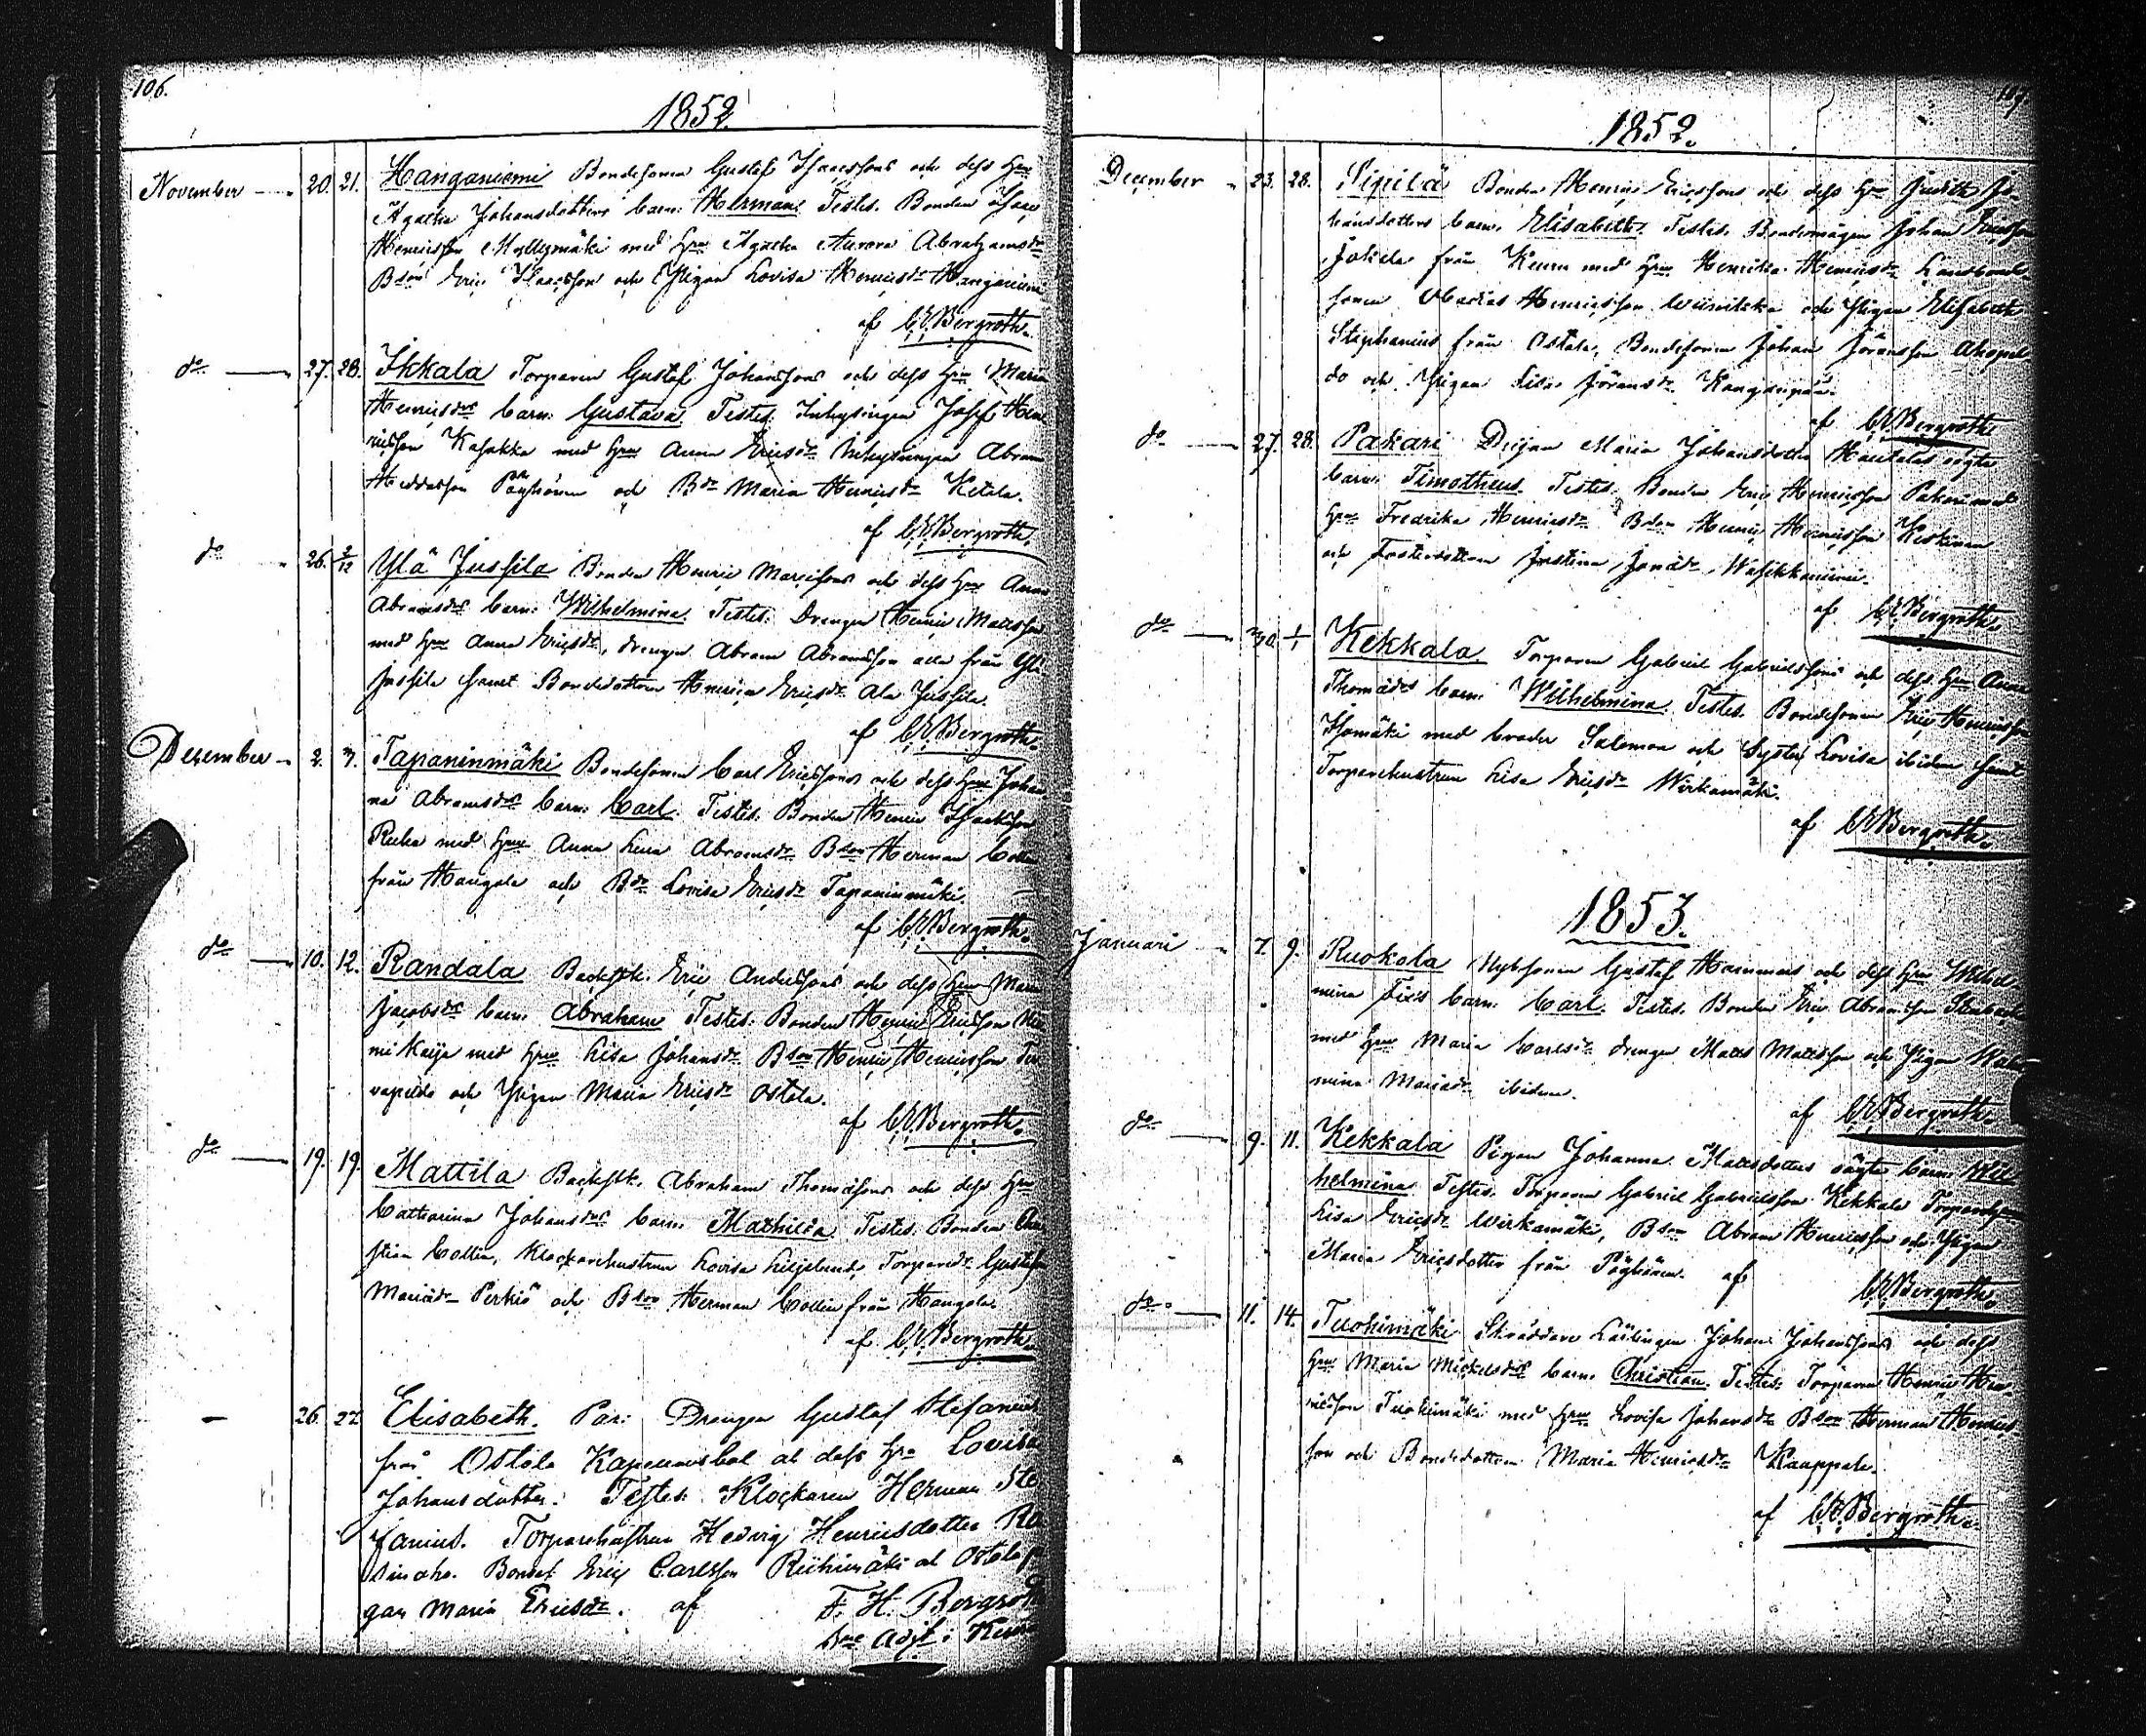 106.
1852.
November 20. 21. Hanganiemi Bondesonen Gustaf Isacssons och dess Hru
Agatha Johansdotters barn: Herman. Testes. Bonden Isaac
Henricsson Myllymäki med Hru Agatha Aurora Abrahamsdr
Bson Eric Isacsson och Pigan Lovisa Henricsdr Hanganiemi
af C.V. Bergroth.
do 27. 28. Ikkala Torparen Gustaf Johanssons och dess Hru Maria
Henricsdrs barn: Gustava. Testes: Inhysingen Josef Hen
ricsson Kasakka med Hru Anna Ericsdr Inhysingen Abram
Pöyhönen och Bdr Maria Henricsdr Ketola.
af C.V. Bergroth.
do 26. 2/12 Ylä Jussila Bonden Henric Marcissons och dess Hru Anna
Abramsdrs barn: Wilhelmina. Testes: Drengen Henric Matsson
med Hru Anna Ericsdr, drengen Abram Abramsson alla från Yli
Jussila samt Bondedottren Henrica Ericsdr Ala Jussila.
af C.V. Bergroth.
December 2. 7. Tapaninmäki Bondesonen Carl Ericssons och dess Hru Johan
na Abramsdrs barn: Carl. Testes. Bonden Henric Isacsson
med Hru Anna Lena Abramsdr Bson Herman Collin
från Haugola och Bdr Lovisa Ericsdr Tapaninmäki.
af C.V. Bergroth.
do 10. 12. Randala Backstk. Eric Anderssons och dess Hru Maria
Jacobsdrs barn: Abraham Testes: Bonden Henric Ericsson Nie
mi Kaija med Hru Lisa Johansdr Bson Henric Henricsson Ter
vapeldo och Pigan Maria Ericsdr Ostola.
af C.V. Bergroth.
do 19. 19. Mattila Backstk. Abraham Thomassons och dess Hru
Catharina Johansdrs barn: Mathilda. Testes. Bonden Chri
stian Collin, Klockarehustrun Lovisa Liljelund, Torparedr Gustafva
Mariadr Perkiö och Bson Herman Collin från Haugola
af C.V. Bergroth.
26. 27 Elisabeth. Par: Drengen Gustaf Stefanius
från Ostola Kapellansbol at dess Hru Lovisa
Johansdotter. Testes: Klockaren Herman Ste
fanius. Torparehustrun Hedvig Henricsdotter
Bondes. Eric Carlsson Riihimäki at Ostola pi
gan Maria Ericsdr. af F. H. Bergroth
v. adj. i
107.
1852.
December 23. 28. Sipilä Bonden Henric Ericssons och dess Hru Judith Jo
hansdotters barn. Elisabeth. Testes. Bondemågen Johan Ericsson
Jokela från Keuru med Hru Henrika Henricsdr Landbonde
sonen Mathias Henricsson och Pigan Elisabeth
Stephanius från Ostola, Bondesonen Johan Jöransson Ahopel
do och Pigan Lisa Jöransdr Kangaspää.
af C.V. Bergroth
do 27. 28. Pakari Pigan Maria Johansdotter Hautalas oägta
barn. Timotheus. Testes. Bonden Eric Henricsson Pakari med
Hru Fredrika Henricsdr Bson Henric Henricsson Keskinen
och Fosterdottren Justina Jonadr Wasikkaniemi.
af C.V. Bergroth.
do 30. 1/1 Kekkala. Torparen Gabriel Gabrielssons och dess Hru Anna
Thomadrs barn. Wilhelmina. Testes. Bondesonen Eric Henricsson
Isomäki med broder Salomon och Syster Lovisa ibidem samt
Torparehustrun Lisa Ericsdr Wirkamäki.
af C.V. Bergroth.
1853.
Januari 7. 9. Ruokola Gustaf och dess Hru Wilhel
mina barn. Carl. Testes. Bonden Eric Abramsson
med Hru Maria Carlsdr drengen Matts Mattsson och Pigan
mina Mariadr ibidem.
af C.V. Bergroth.
do 9. 11. Kekkala Pigan Johanna Mattsdotters oägta barn Wil
helmina. Testes. Torparen Gabriel Gabrielsson Kekkala Torparehru
Lisa Ericsdr Wirkamäki, Bson Abram Henricsson och Pigan
Maria Ericsdotter från Pöyhönen. af C.V. Bergroth.
do 11. 14. Tuohimäki Skräddare Lärlingen Johan Johanssons och dess
Hru Maria Mickelsdrs barn. Christian. Testes: Torparen Henric Hen
ricsson Tuohimäki med Hru Lovisa Johansdr Bson Herman Henrics
son och Bondedottren Maria Henricsdr Kauppala.
af C.V. Bergroth.